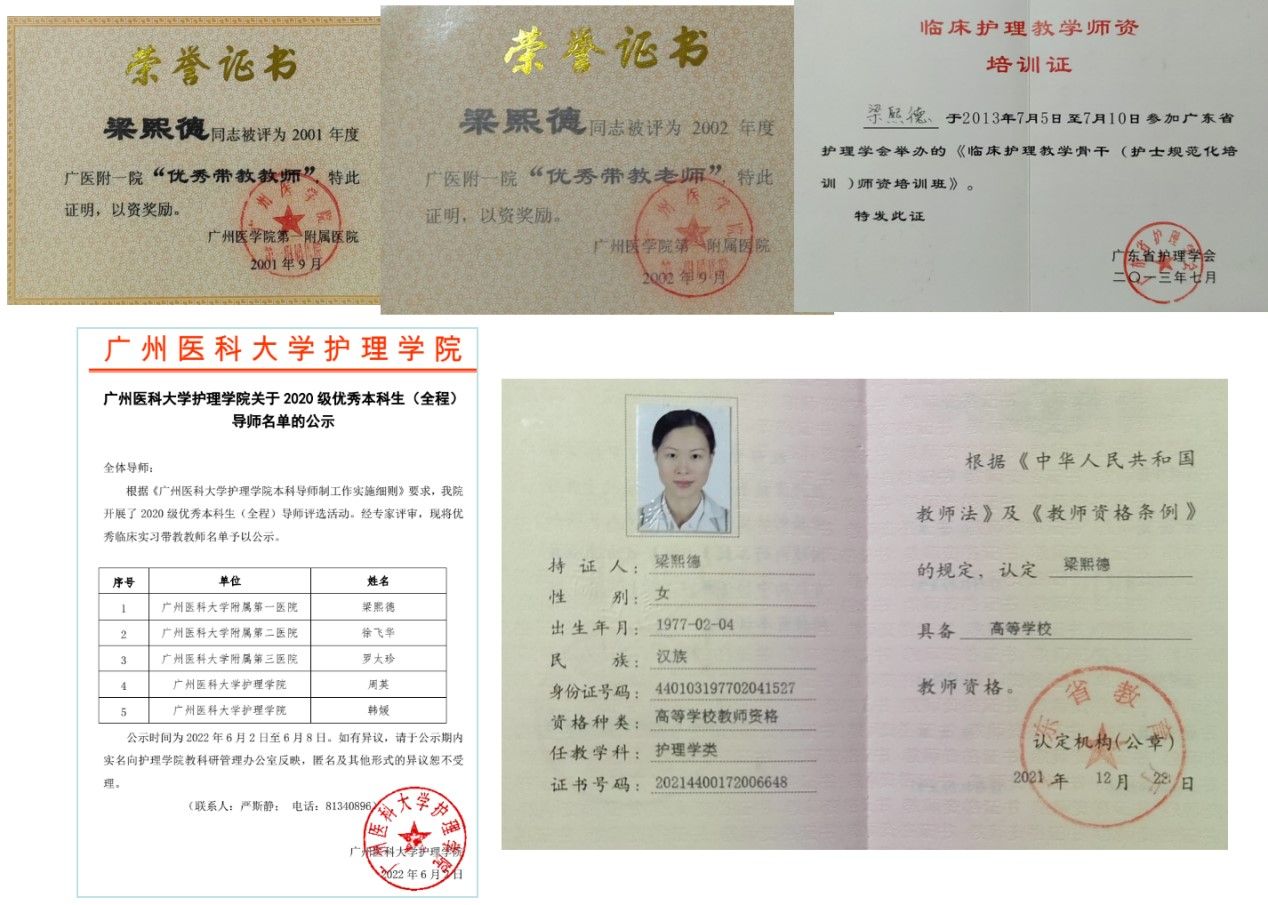 荣誉证书
梁熙德同志被评为 2001 年度
广医附一院“优秀带教教师”，特此
证明，以资奖励。
广州医学院第一附属医院
2001 年 9 月
荣誉证书
梁熙德同志被评为 2002 年度
广医附一院“优秀带教老师”，特此
证明，以资奖励。
广州医学院第一附属医院
2002 年 9 月
临床护理教学师资
培训证
梁熙德 于2013年7月5日至7月10日参加广东省
护理学会举办的《临床护理教学骨干（护士规范化培
训 ）师资培训班》。
特发此证
广东省护理学会
二〇一三年七月
广州医科大学护理学院
广州医科大学护理学院关于 2020 级优秀本科生（全程）
导师名单的公示
全体导师：
根据《广州医科大学护理学院本科导师制工作实施细则》要求，我院
开展了 2020 级优秀本科生（全程）导师评选活动。经专家评审，现将优
秀临床实习带教教师名单予以公示。
序号 单位 姓名
1 广州医科大学附属第一医院 梁熙德
2 广州医科大学附属第二医院 徐飞华
3 广州医科大学附属第三医院 罗太珍
4 广州医科大学护理学院 周英
5 广州医科大学护理学院 韩媛
公示时间为 2022 年 6 月 2 日至 6 月 8 日。如有异议，请于公示期内
实名向护理学院教科研管理办公室反映，匿名及其他形式的异议恕不受
理。
（联系人：严斯静； 电话：81340896）
广州医科大学护理学院
2022 年 6 月 日
广州医科大学护理学院
持证人：梁熙德
性别：女
出生年月：1977-02-04
民族：汉族
身份证号码：440103197702041527
资格种类：高等学校教师资格
任教学科：护理学类
证书号码：20214400172006648
根据《中华人民共和国
教师法》及《教师资格条例》
的规定，认定 梁熙德
具备 高等学校
教师资格。
认定机构（公章）
2021 年 12 月 28 日